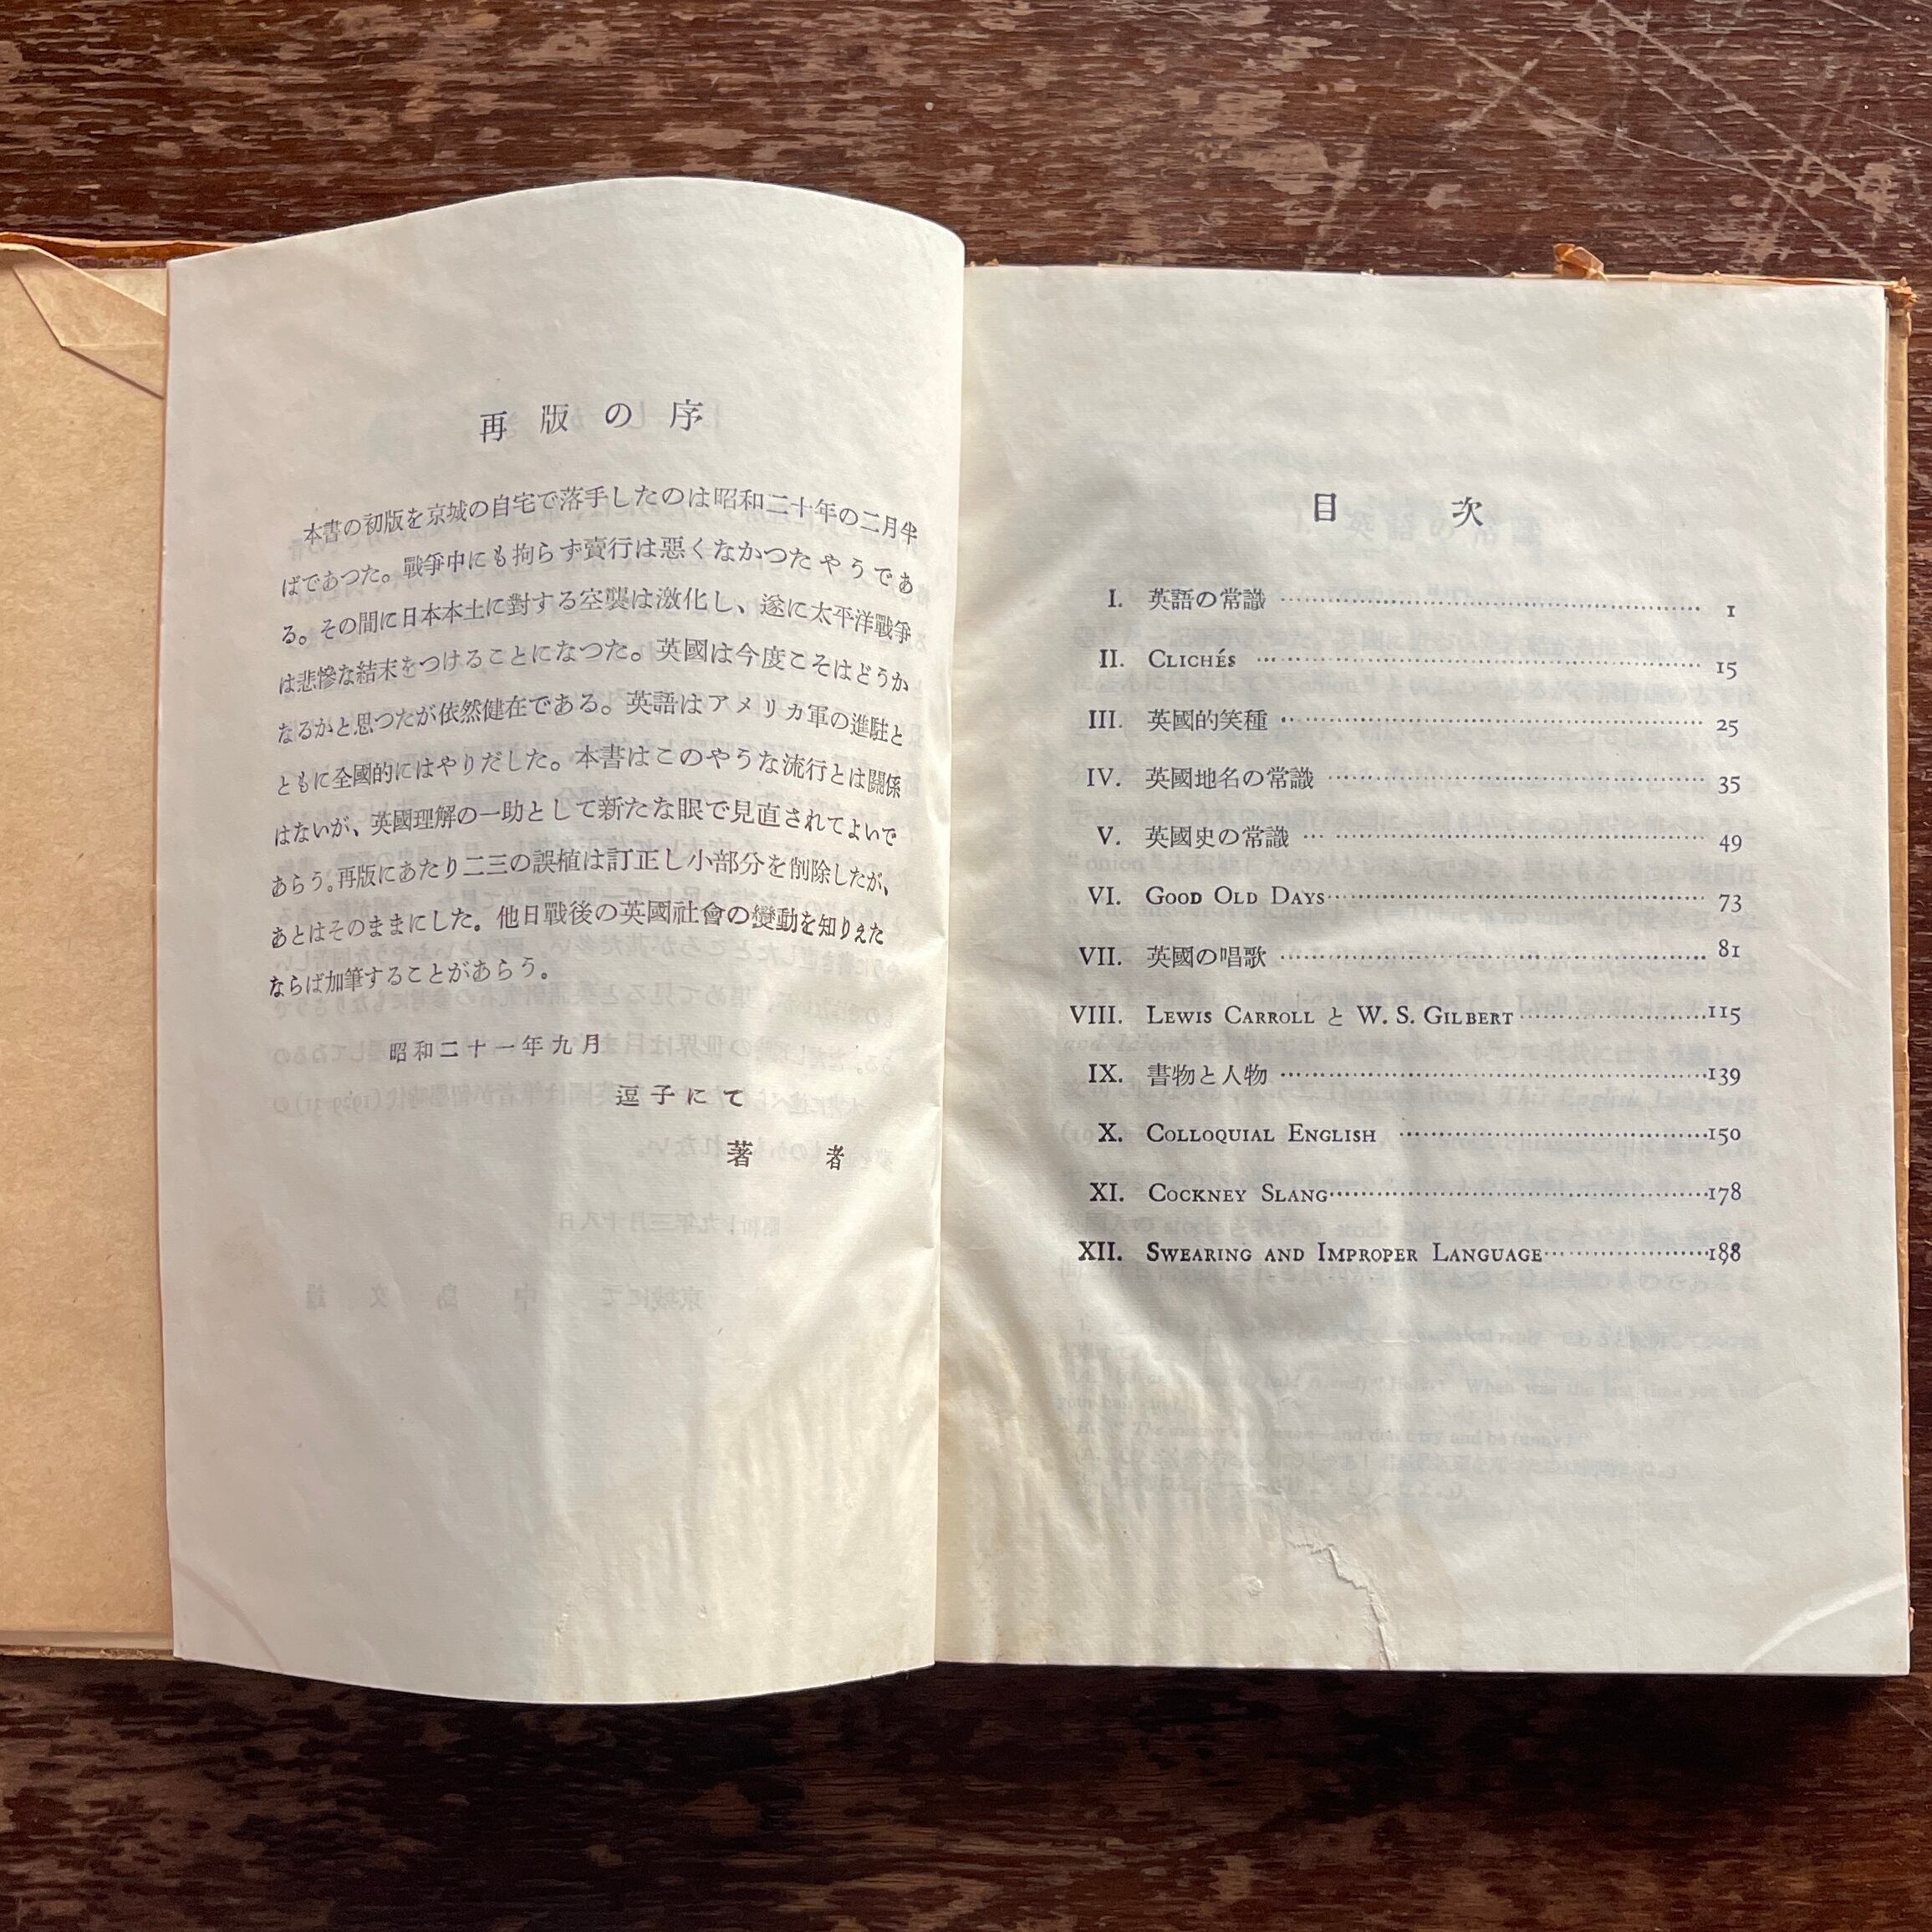 再版の序
本書の初版を京城の自宅で落手したのは昭和二十年の二月半
ばであつた。戰爭中にも拘らず賣行は惡くなかつたやうであ
る。その間に日本本土に對する空襲は激化し、遂に太平洋戰爭
は悲慘な結末をつけることになつた。英國は今度こそはどうか
なるかと思つたが依然健在である。英語はアメリカ軍の進駐と
ともに全國的にはやりだした。本書はこのやうな流行とは關係
はないが、英國理解の一助として新たな眼で見直されてよいで
あらう。再版にあたり二三の誤植は訂正し小部分を削除したが、
あとはそのままにした。他日戰後の英國社會の變動を知りえた
ならば加筆することがあらう。
昭和二十一年九月
逗子にて
著者
目次
I. 英語の常識 1
II. CLICHÉS 15
III. 英國的笑種 25
IV. 英國地名の常識 35
V. 英國史の常識 49
VI. GOOD OLD DAYS 73
VII. 英國の唱歌 81
VIII. LEWIS CARROLL と W. S. GILBERT 115
IX. 書物と人物 139
X. COLLOQUIAL ENGLISH 150
XI. COCKNEY SLANG 178
XII. SWEARING AND IMPROPER LANGUAGE 188